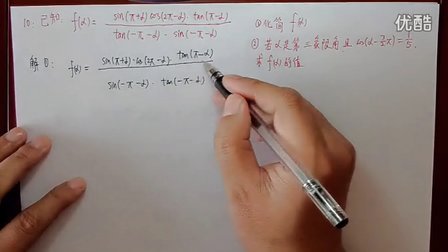 优酷
10. 已知: f(α) = sin(π+α) cos(2π-α) · tan(π-α) / tan(-π-α) · sin(-π-α)
①化简 f(α)
②若α是第三象限角且 cos(α-3/2π)=1/5.
求 f(α)的值
解①: f(α) = sin(π+α)·cos(2π-α)·tan(π-α) / sin(-π-α)·tan(-π-α)